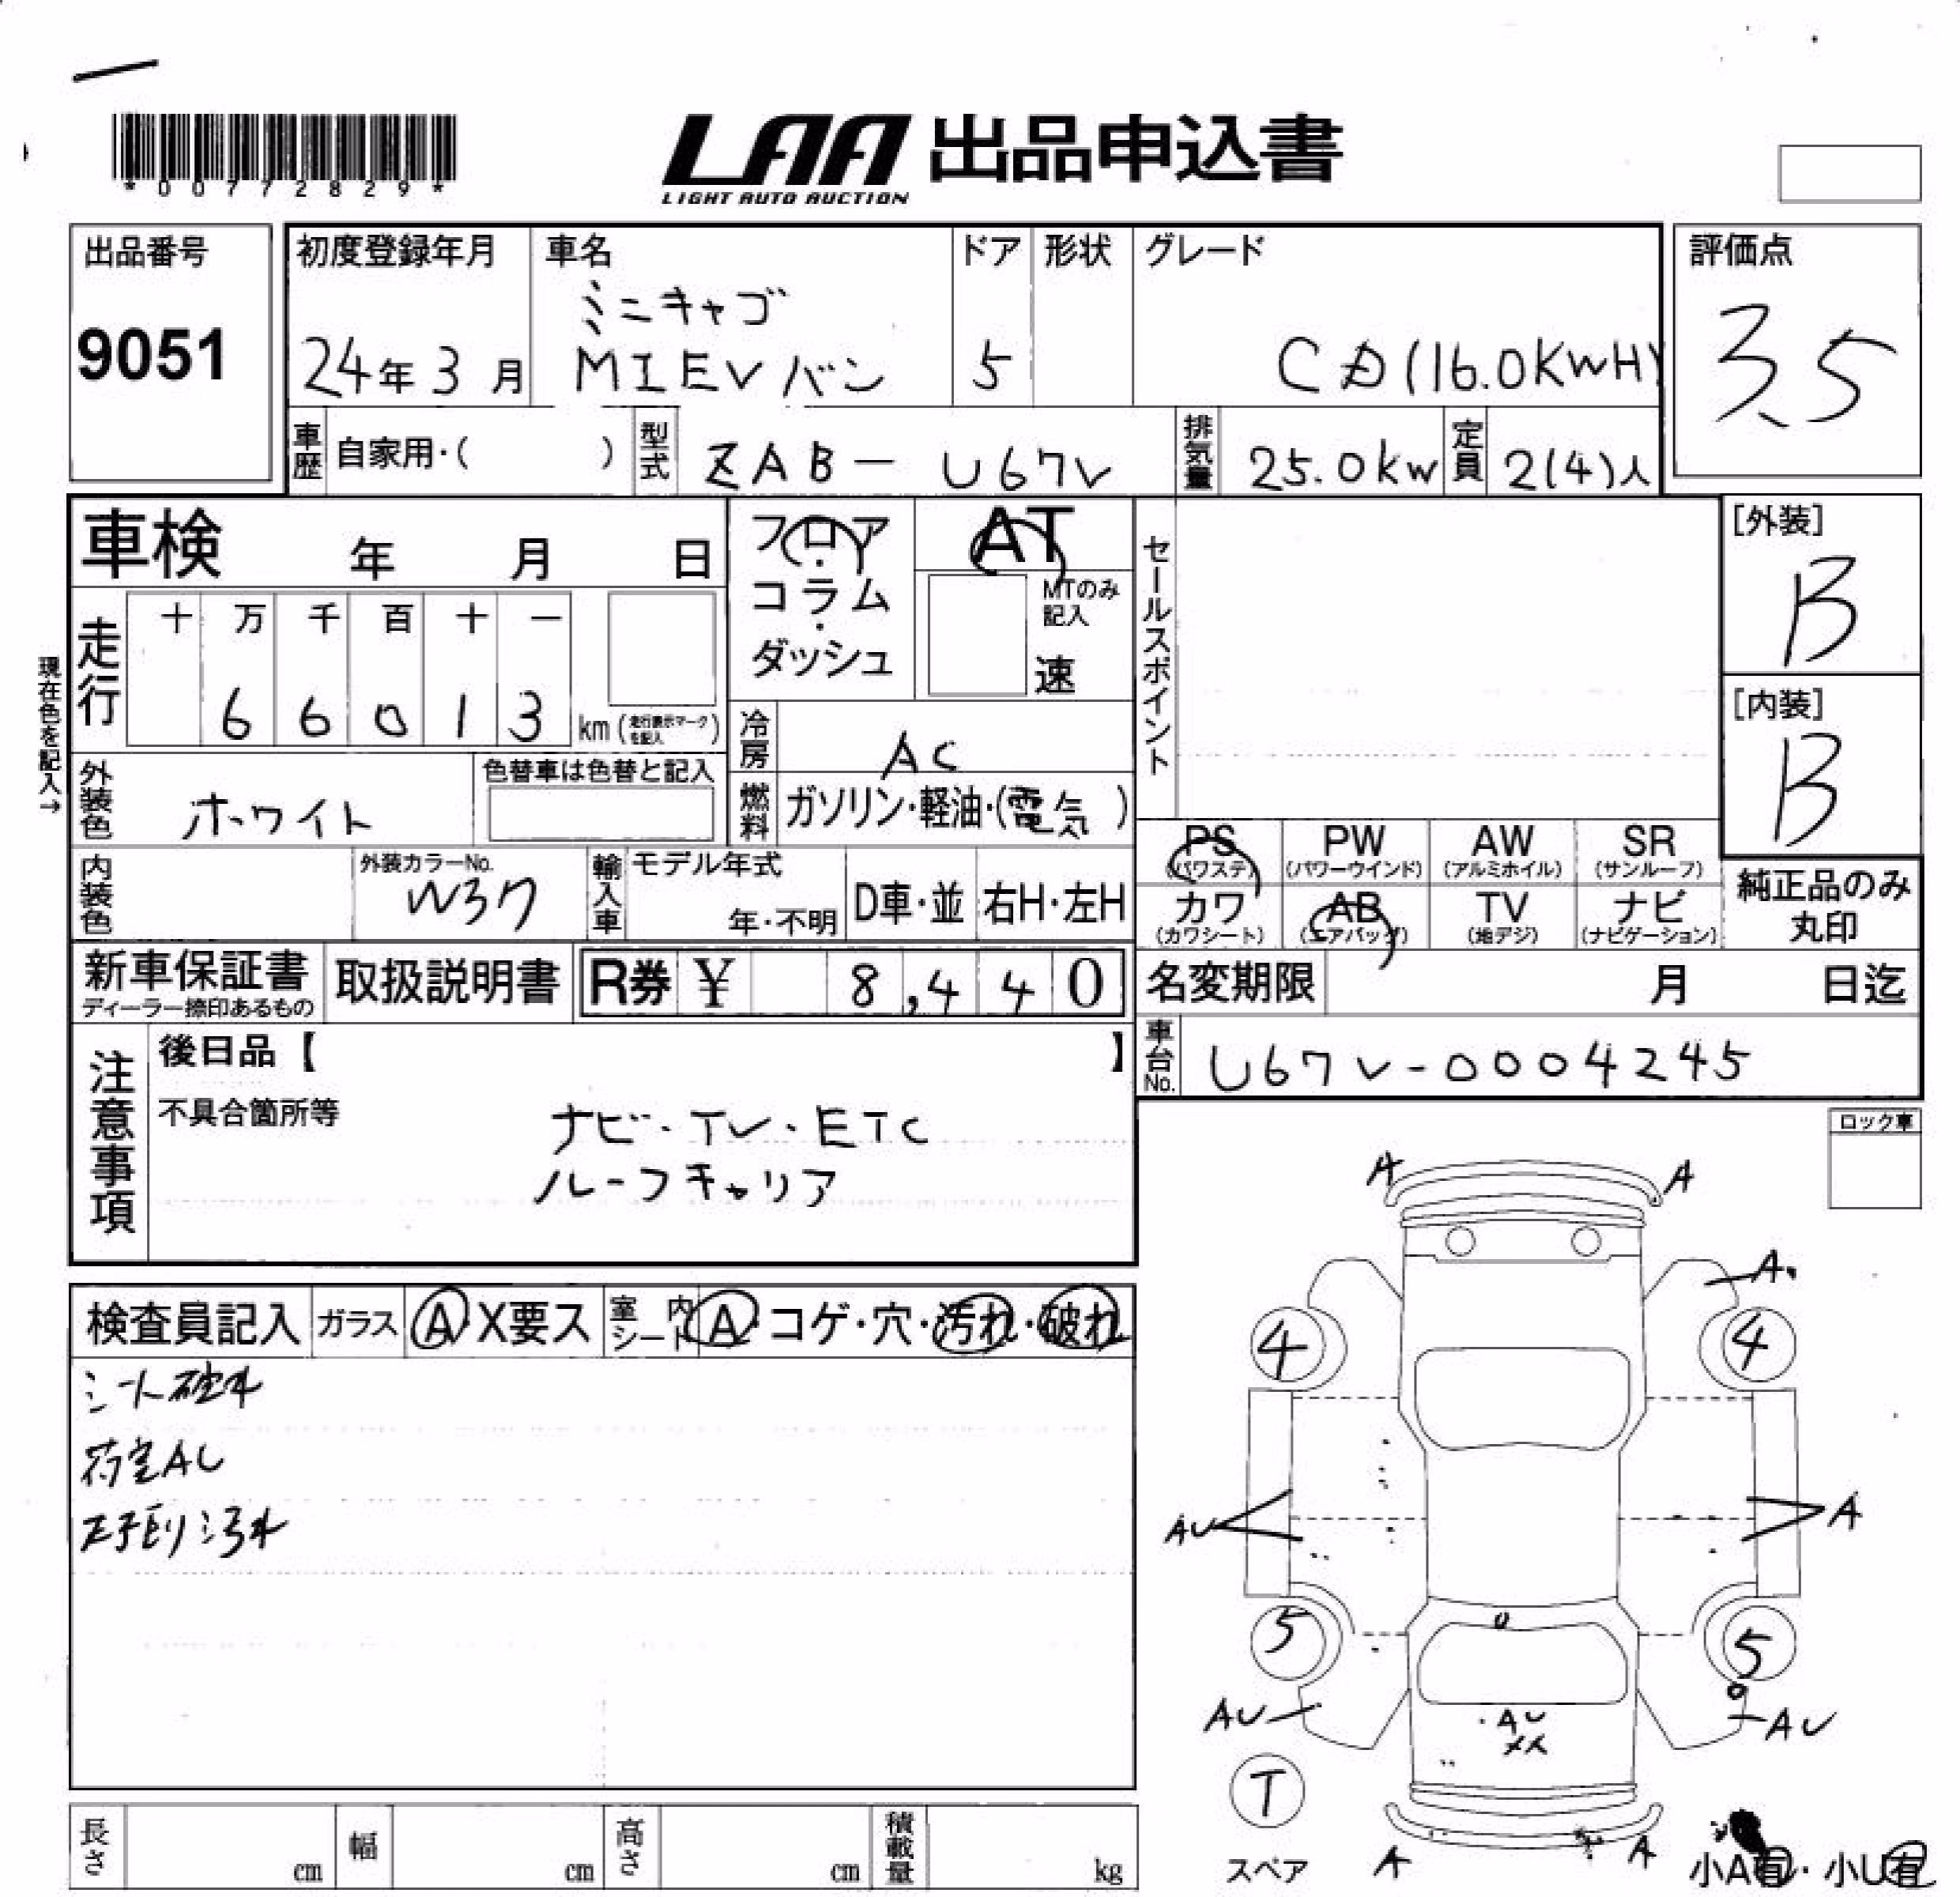 *00772829*
LAA 出品申込書
LIGHT AUTO AUCTION
出品番号
9051
初度登録年月
24年3月
車名
ミニキャブ
MIEVバン
ドア
5
形状
グレード
CD(16.0KWH)
評価点
3.5
車歴 自家用・( )
型式 ZAB-U67V
排気量 25.0kw
定員 2(4)人
車検 年 月 日
フロア・コラム・ダッシュ
AT
MTのみ記入
速
セールスポイント
[外装]
B
[内装]
B
現在色を記入→
走行 十 万 千 百 十 一
6 6 0 1 3 km (走行表示マークを記入)
冷房 AC
外装色 ホワイト
色替車は色替と記入
燃料 ガソリン・軽油・(電気)
内装色
外装カラーNo.
W37
輸入車 モデル年式
年・不明
D車・並
右H・左H
PS (パワステ)
PW (パワーウインド)
AW (アルミホイル)
SR (サンルーフ)
カワ (カワシート)
AB (エアバッグ)
TV (地デジ)
ナビ (ナビゲーション)
純正品のみ丸印
新車保証書
ディーラー捺印あるもの
取扱説明書
R券 ¥ 8,440
名変期限 月 日迄
車台No. U67V-0004245
注意事項
後日品【 】
不具合箇所等
ナビ・TV・ETC
ルーフキャリア
ロック車
検査員記入 ガラス A X要ス 室内シート A・コゲ・穴・汚れ・破れ
シート破れ
荷室AU
汚れ
A A
A
4 4
AU A
5 5
AU AU
AU
XX
T
スペア
A A
小A有・小U有
長さ cm 幅 cm 高さ cm 積載量 kg